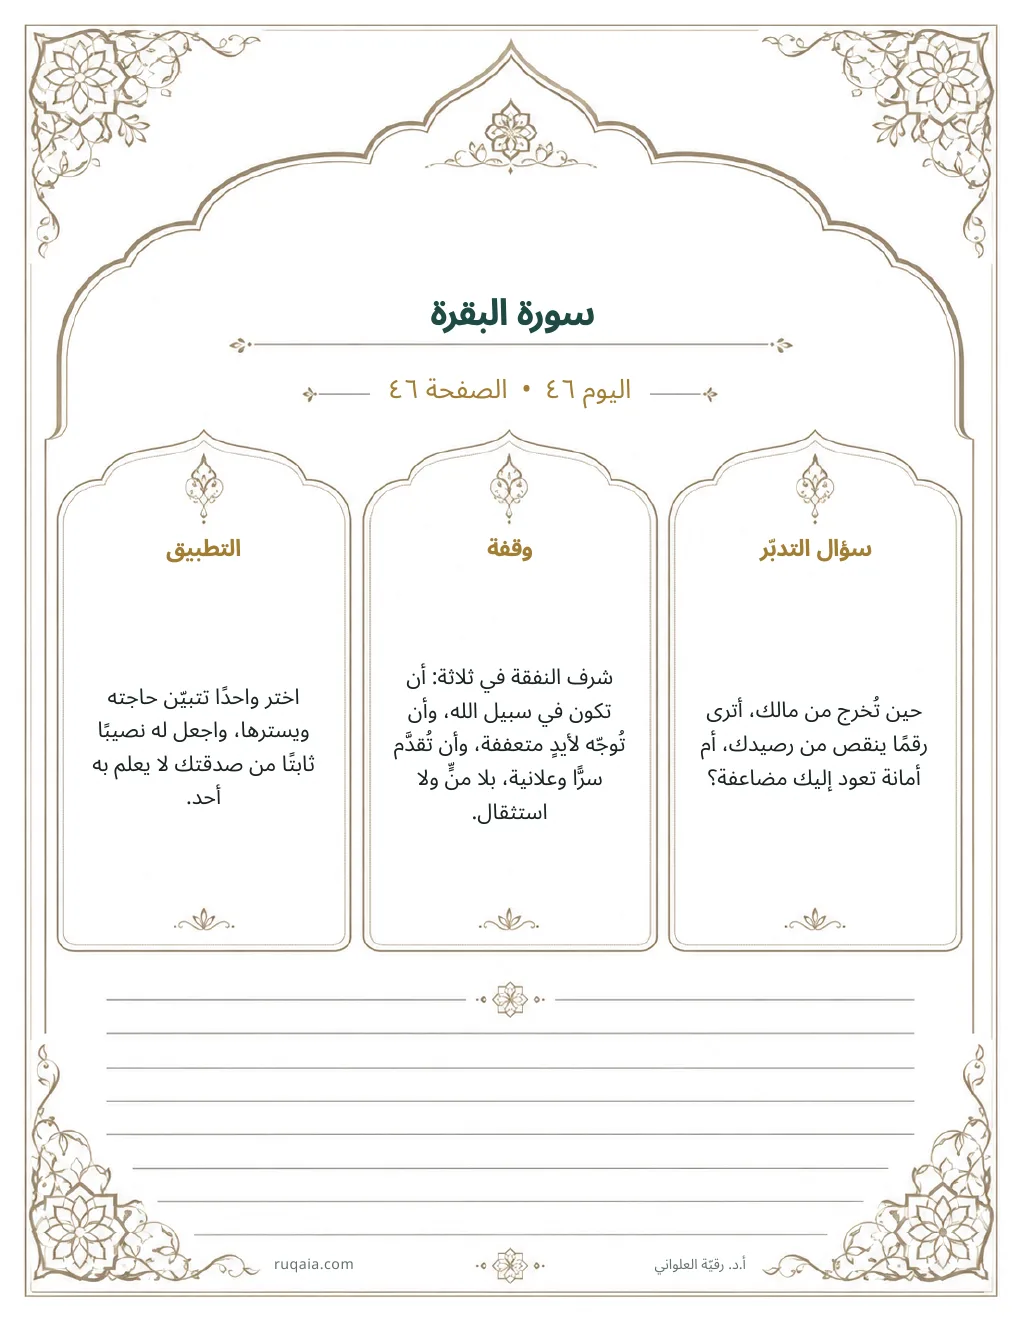 سورة البقرة
اليوم ٤٦ • الصفحة ٤٦
سؤال التدبّر
حين تُخرج من مالك، أترى
رقمًا ينقص من رصيدك، أم
أمانة تعود إليك مضاعفة؟
وقفة
شرف النفقة في ثلاثة: أن
تكون في سبيل الله، وأن
تُوجّه لأيدٍ متعففة، وأن تُقدَّم
سرًّا وعلانية، بلا منٍّ ولا
استثقال.
التطبيق
اختر واحدًا تتبيّن حاجته
ويسترها، واجعل له نصيبًا
ثابتًا من صدقتك لا يعلم به
أحد.
أ.د. رقيّة العلواني
ruqaia.com